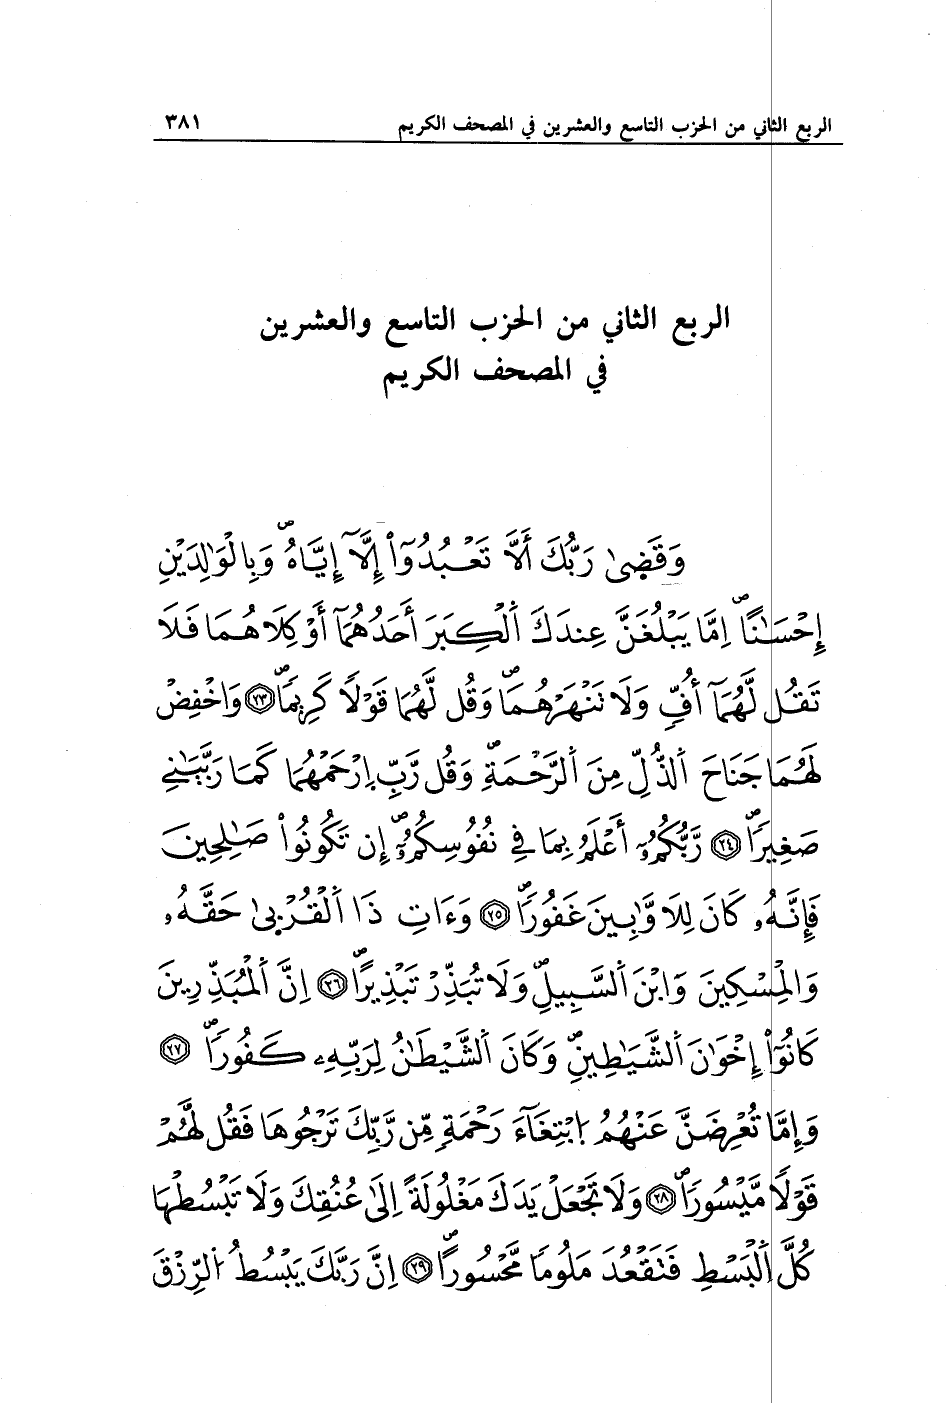 الربع الثاني من الحزب التاسع والعشرين في المصحف الكريم ٣٨١
الربع الثاني من الحزب التاسع والعشرين
في المصحف الكريم
وَقَضىٰ رَبُّكَ أَلَّا تَعْبُدُوٓاْ إِلَّآ إِيَّاهُ وَبِالْوَٰلِدَيْنِ
إِحْسَٰنًا اِمَّا يَبْلُغَنَّ عِندَكَ اَلْكِبَرَ أَحَدُهُمَآ أَوْ كِلَاهُمَا فَلَا
تَقُل لَّهُمَآ أُفٍّ وَلَا تَنْهَرْهُمَا وَقُل لَّهُمَا قَوْلًا كَرِيمًا ٢٣ وَاخْفِضْ
لَهُمَا جَنَاحَ اَلذُّلِّ مِنَ اَلرَّحْمَةِ وَقُل رَّبِّ اِرْحَمْهُمَا كَمَا رَبَّيَٰنِے
صَغِيرًا ٢٤ رَّبُّكُمُۥٓ أَعْلَمُ بِمَا فِے نُفُوسِكُمُۥٓ إِن تَكُونُواْ صَٰلِحِينَ
فَإِنَّهُۥ كَانَ لِلَاوَّٰبِينَ غَفُورًا ٢٥ وَءَاتِ ذَا اَلْقُرْبىٰ حَقَّهُۥ
وَالْمِسْكِينَ وَابْنَ اَلسَّبِيلِ وَلَا تُبَذِّرْ تَبْذِيرًا ٢٦ اِنَّ اَلْمُبَذِّرِينَ
كَانُوٓاْ إِخْوَٰنَ اَلشَّيَٰطِينِ وَكَانَ اَلشَّيْطَٰنُ لِرَبِّهِۦ كَفُورًا ٢٧
وَإِمَّا تُعْرِضَنَّ عَنْهُمُ اُبْتِغَآءَ رَحْمَةٍ مِّن رَّبِّكَ تَرْجُوهَا فَقُل لَّهُمْ
قَوْلًا مَّيْسُورًا ٢٨ وَلَا تَجْعَلْ يَدَكَ مَغْلُولَةً اِلَىٰ عُنُقِكَ وَلَا تَبْسُطْهَا
كُلَّ اَلْبَسْطِ فَتَقْعُدَ مَلُومًا مَّحْسُورًا ٢٩ اِنَّ رَبَّكَ يَبْسُطُ اُلرِّزْقَ